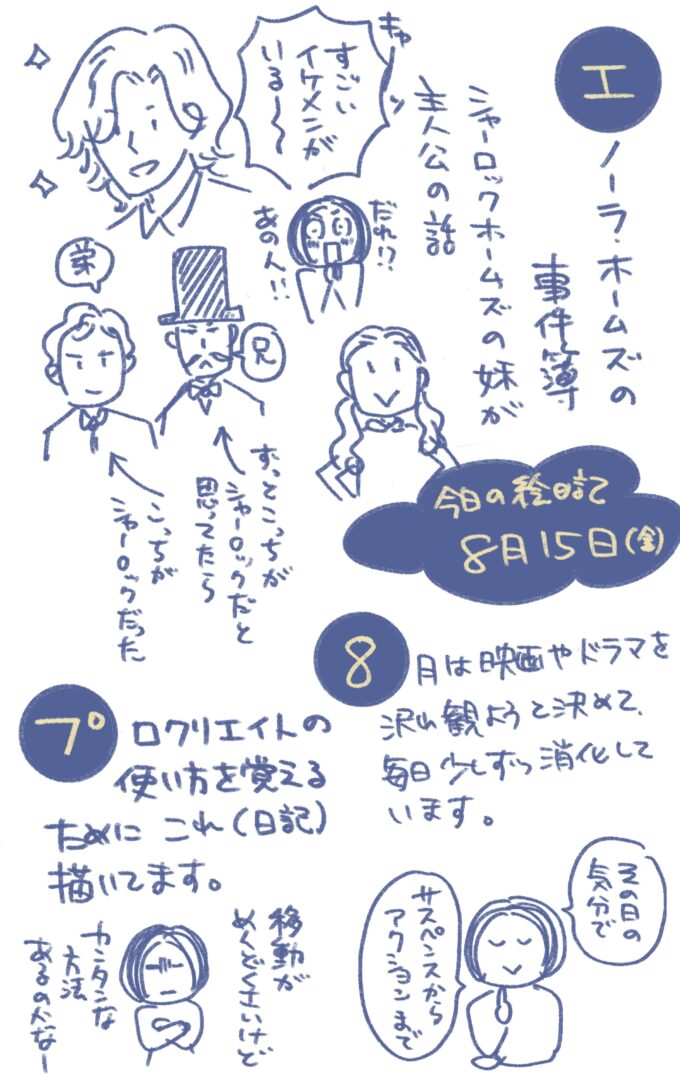 エノーラ・ホームズの
事件簿
シャーロックホームズの妹が
主人公の話
キャーッ
すごい
イケメンが
いる〜〜
だれ!?
あの人!!
弟
兄
ずっとこっちが
シャーロックだと
思ってたら
こっちが
シャーロックだった
今日の絵日記
8月15日(金)
8月は映画やドラマを
沢山観ようと決めて、
毎日少しずつ消化して
います。
その日の
気分で
サスペンスから
アクションまで
プロクリエイトの
使い方を覚える
ために これ(日記)
描いてます。
移動が
めんどくさいけど
カンタンな
方法
あるのかなー